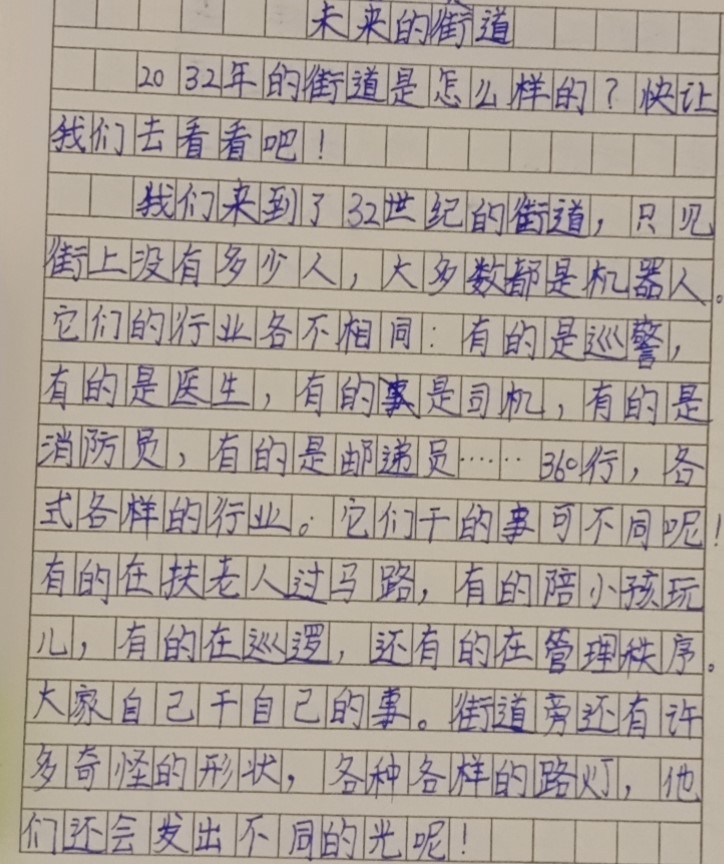 未来的街道
2032年的街道是怎么样的?快让
我们去看看吧!
我们来到了32世纪的街道,只见
街上没有多少人,大多数都是机器人。
它们的行业各不相同:有的是巡警,
有的是医生,有的是司机,有的是
消防员,有的是邮递员……360行,各
式各样的行业。它们干的事可不同呢!
有的在扶老人过马路,有的陪小孩玩
儿,有的在巡逻,还有的在管理秩序。
大家自己干自己的事。街道旁还有许
多奇怪的形状,各种各样的路灯,他
们还会发出不同的光呢!